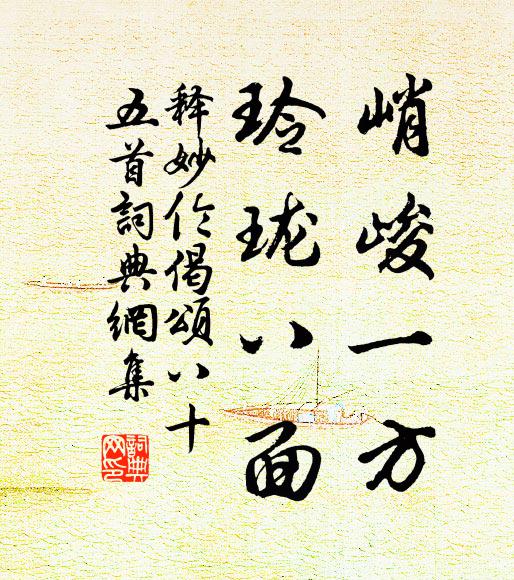 峭峻一方
玲珑八面
释妙伦偈颂八十
五首詞典網集
詞典
网印